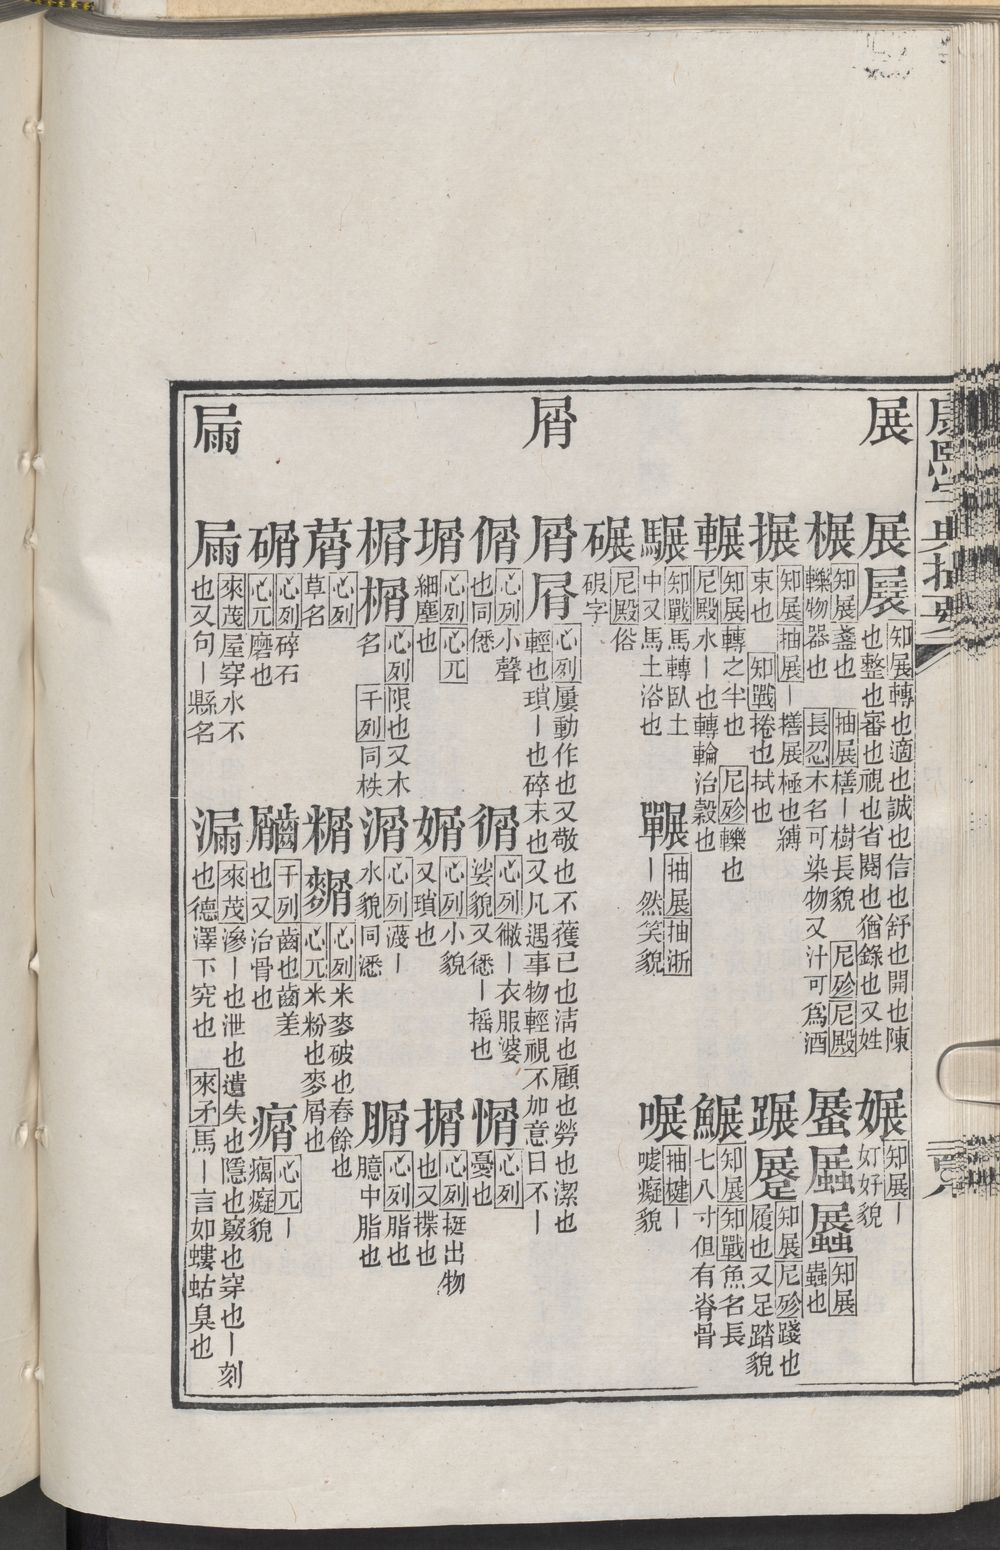 康熙字典撮要
展
展 展 知展轉也適也誠也信也舒也開也陳
也整也審也視也省閱也猶錄也又姓
㜊 知展ー
好好貌
榐 知展盞也 抽展橏ー樹長貌 尼殄尼殿
轢物器也 長忍木名可染物又汁可爲酒
蜃 知展
蟲也
搌 知展抽展ー㩛展極也縛
束也 知戰捲也拭也
蹍 知展尼殄踐也
履也又足踏貌
輾 知展轉之半也 尼殄轢也
尼殿水ー也轉輪治穀也
鱣 知展知戰魚名長
七八寸但有脊骨
驏 知戰馬轉臥土
中又馬土浴也
抽展抽浙
ー然笑貌
抽健ー
㖷癡貌
碾 尼殿俗
碬字
屑
屑 屑 心列屢動作也又敬也不獲已也淸也顧也勞也潔也
輕也瑣ー也碎末也又凡遇事物輕視不加意曰不ー
偦 心列小聲
也同僁
心列䙠ー衣服婆
娑貌又僁ー搖也
心列
憂也
塮 心列心兀
細塵也
心列小貌
又瑣也
揟 心列挺出物
也又揲也
榍 榍 心列限也又木
名 千列同柣
心列瀎ー
水貌同㴮
心列脂也
臆中脂也
心列
草名
糏 心列米麥破也舂餘也
心兀米粉也麥屑也
心列碎石
心兀磨也
千列齒也齒差
也又治骨也
心兀ー
㾪癡貌
屚
屚 來茂屋穿水不
也又句ー縣名
漏 來茂滲ー也泄也遺失也隱也竅也穿也ー刻
也德澤下究也 來矛馬ー言如螻蛄臭也